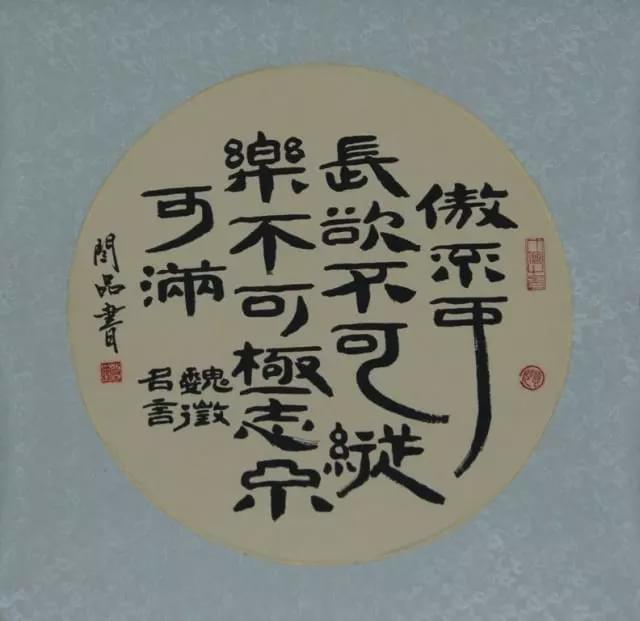 傲不可
長欲不可縱
樂不可極志不
可滿
魏徵
名言
閆品書